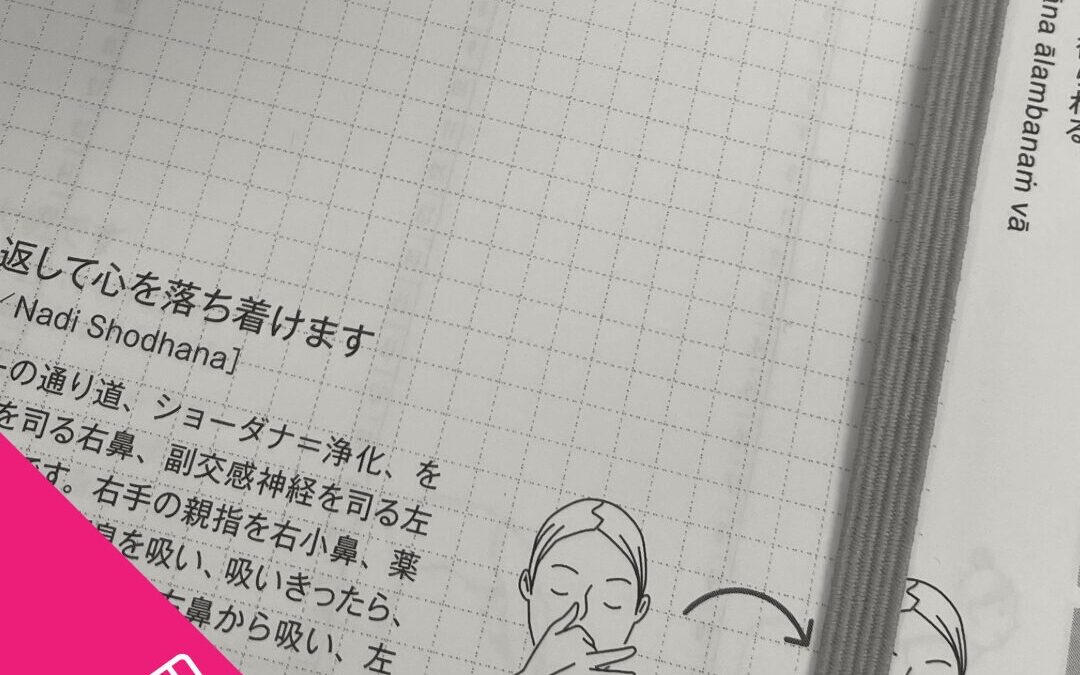 返して心を落ち着けます
／Nadi Shodhana］
ーの通り道、ショーダナ＝浄化、を
を司る右鼻、副交感神経を司る左
です。右手の親指を右小鼻、薬
息を吸い、吸いきったら、
左鼻から吸い、左
āna ālambanaṁ vā